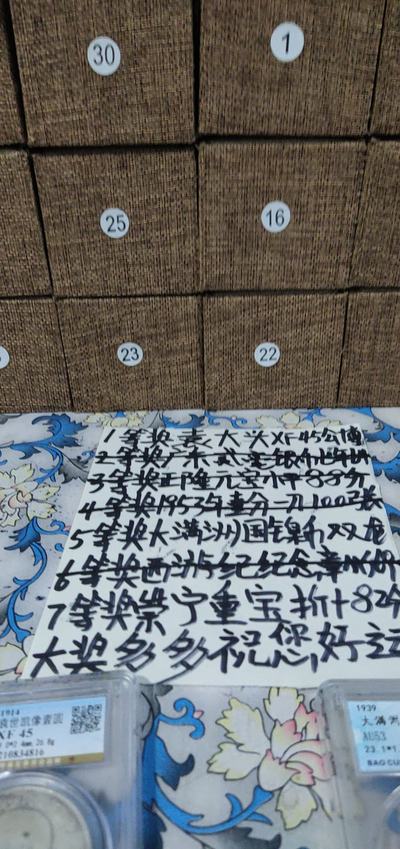 30
1
25
16
23
22
1等奖袁大头XF45公博
2等奖广东贰毫银币
3等奖正隆元宝小平88分
4等奖1953年壹分一刀100张
5等奖大满洲国镍币双龙
6等奖西洲纪纪念章
7等奖崇宁重宝折十82分
大奖多多祝您好运
1914
袁世凯像壹圆
XF 45
26.8g
210834816
1939
大满洲
AU53
23.1*1.